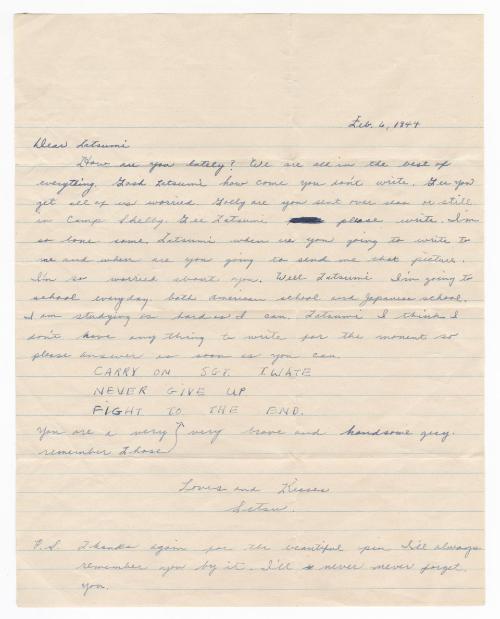 Feb. 6, 1944
Dear Tatsumi
How are you lately? We are all in the best of
everything. Gosh Tatsumi how come you don't write. Gee you
get all of us worried. Golly are you sent over seas or still
in Camp Shelby. Gee Tatsumi please write. I'm
so lone some. Tatsumi when are you going to write to
me and when are you going to send me that picture.
I'm so worried about you. Well Tatsumi I'm going to
school everyday. both American school and Japanese school.
I am studying as hard as I can. Tatsumi I think I
don't have any thing to write for the moment so
please answer as soon as you can.
CARRY ON SGT. IWATE
NEVER GIVE UP
FIGHT TO THE END.
You are a very very brave and handsome guy.
remember those
Loves and Kisses
Setsu.
P.S. Thanks again for the beautiful pin I'll always
remember you by it. I'll never never forget
you.